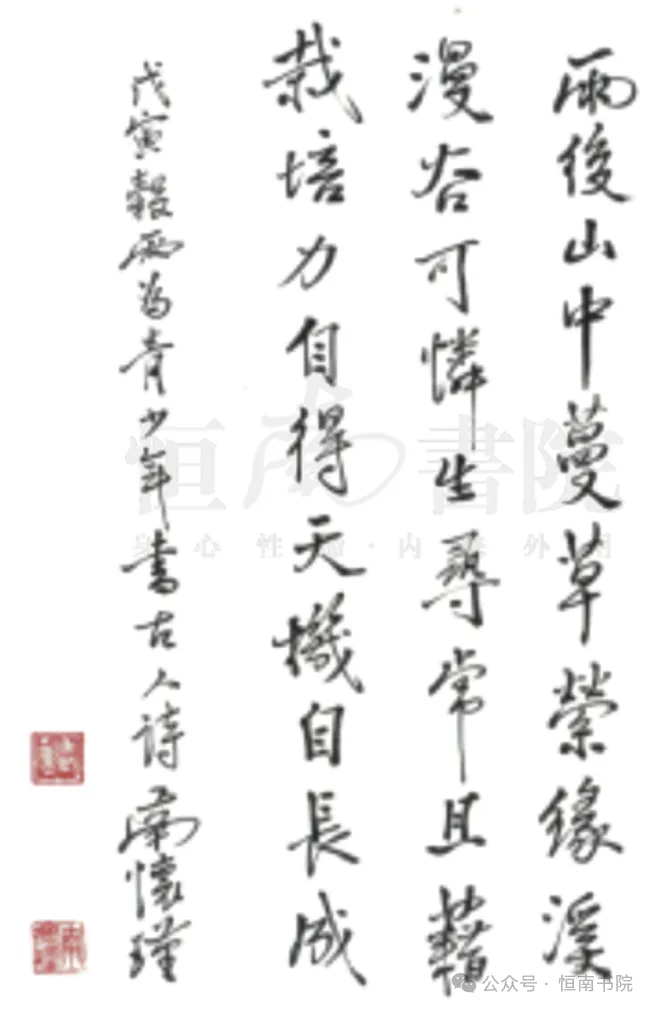 雨後山中蔓草榮緣溪
漫谷可憐生尋常且藉
栽培力自得天機自長成
戊寅穀雨為青少年書古人詩 南懷瑾
恒南書院
身心性命·内養外用
公众号·恒南书院